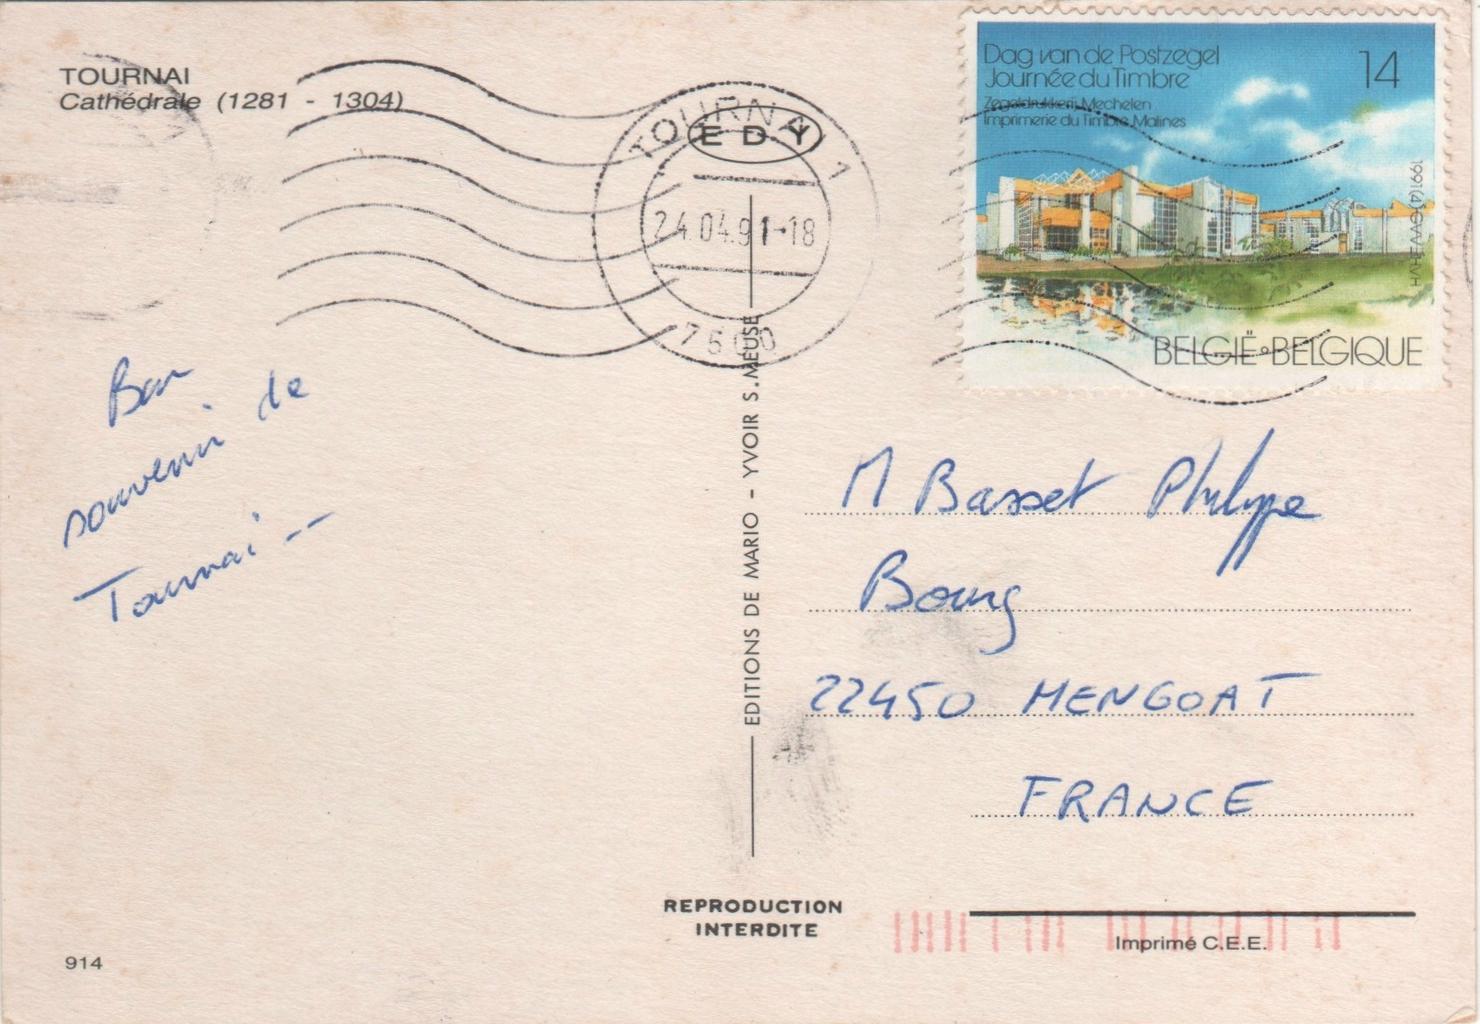 TOURNAI
Cathédrale (1281 - 1304)
Bon
souvenir de
Tournai -
914
TOURNAI 1
EDY
24.04.91-18
7500
EDITIONS DE MARIO - YVOIR S. MEUSE
REPRODUCTION
INTERDITE
Dag van de Postzegel
Journée du Timbre
Zegeldrukkerij Mechelen
Imprimerie du Timbre Malines
14
BELGIË•BELGIQUE
M Basset Philippe
Bourg
22450 MENGOAT
FRANCE
Imprimé C.E.E.